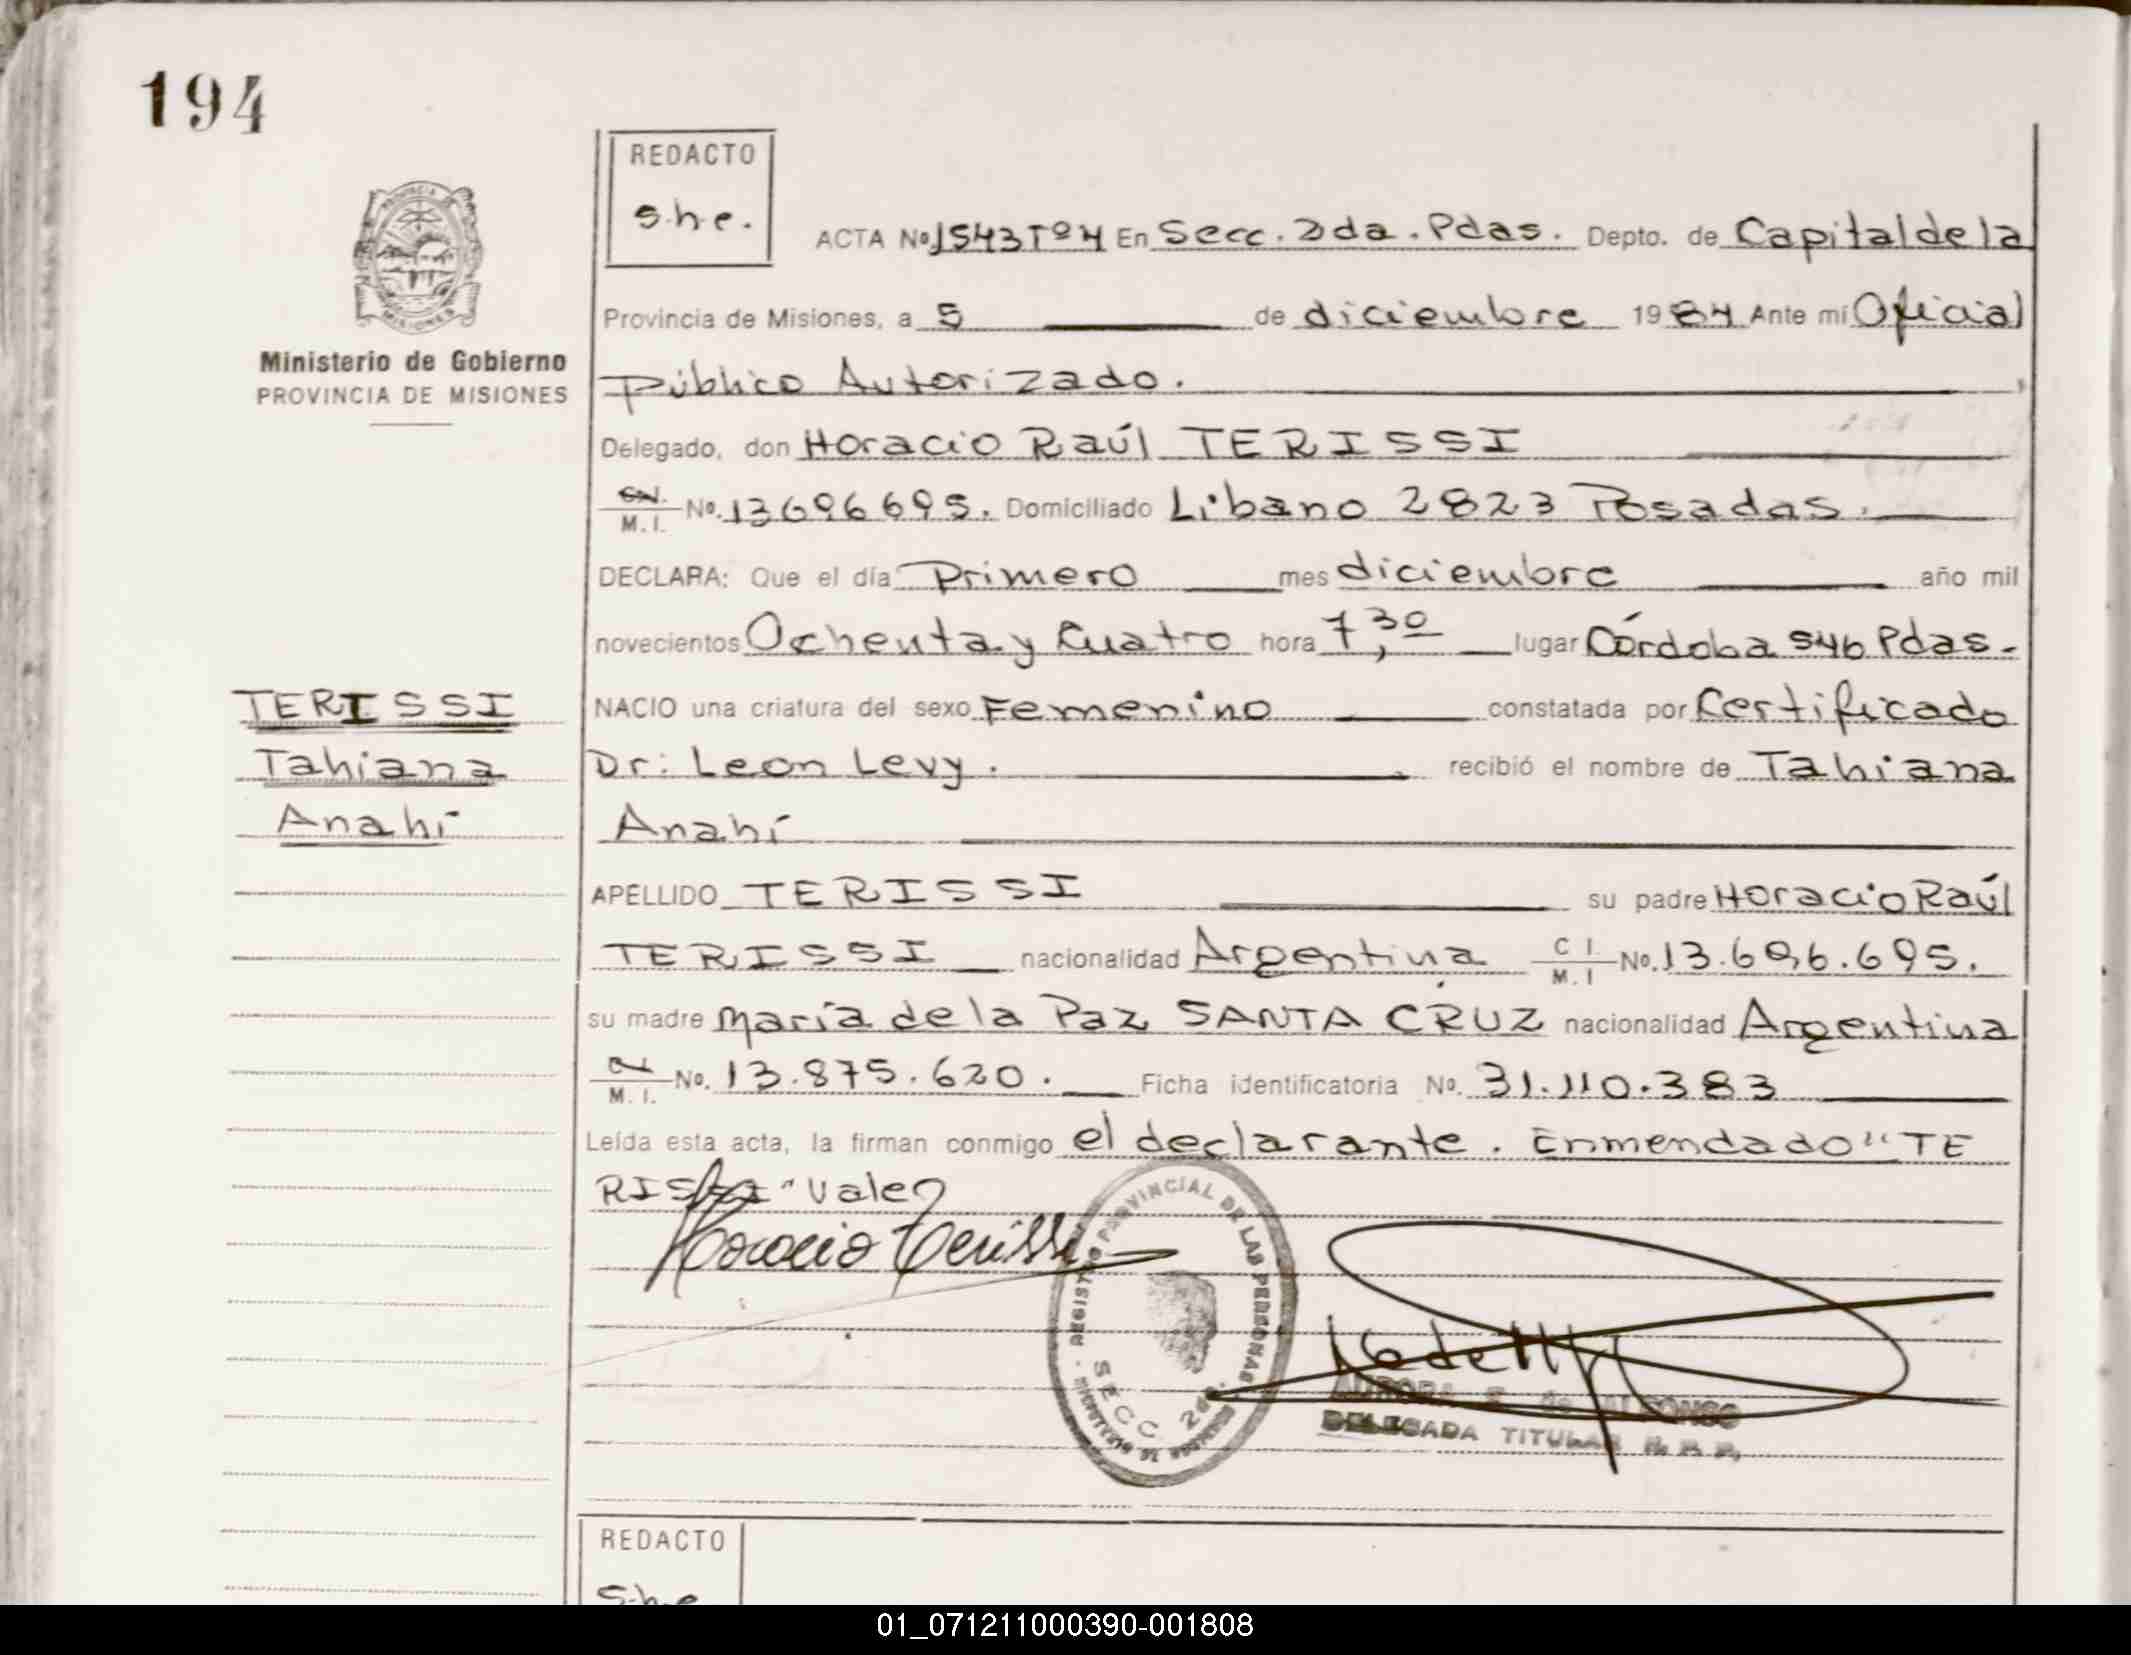 194
REDACTO
s.h.e.
ACTA Nº 1543 Tº 4 En Secc. 2da. Pdas. Depto. de Capital de la
PROVINCIA
MISIONES
Ministerio de Gobierno
PROVINCIA DE MISIONES
Provincia de Misiones, a 5 de diciembre 1984 Ante mí Oficial
Público Autorizado.
Delegado, don Horacio Raúl TERISSI
M. I. No. 13696695. Domiciliado Libano 2823 Posadas.
DECLARA: Que el día Primero mes diciembre año mil
novecientos Ochenta y Cuatro hora 7,30 lugar Córdoba 546 Pdas.
TERISSI
Tahiana
Anahí
NACIO una criatura del sexo Femenino constatada por Certificado
Dr: Leon Levy. recibió el nombre de Tahiana
Anahí
APELLIDO TERISSI su padre Horacio Raúl
TERISSI nacionalidad Argentina C I. M. I No. 13.696.695.
su madre María de la Paz SANTA CRUZ nacionalidad Argentina
M. I. No. 13.875.620. Ficha identificatoria No. 31.110.383
Leída esta acta, la firman conmigo el declarante. Enmendado "TE
RISSI" Vale
Horacio Terissi
REGISTRO PROVINCIAL DE LAS PERSONAS
SECC 2da.
AURORA de ALFONSO
DELEGADA TITULAR R. P. P.
REDACTO
s.h.e
01_071211000390-001808